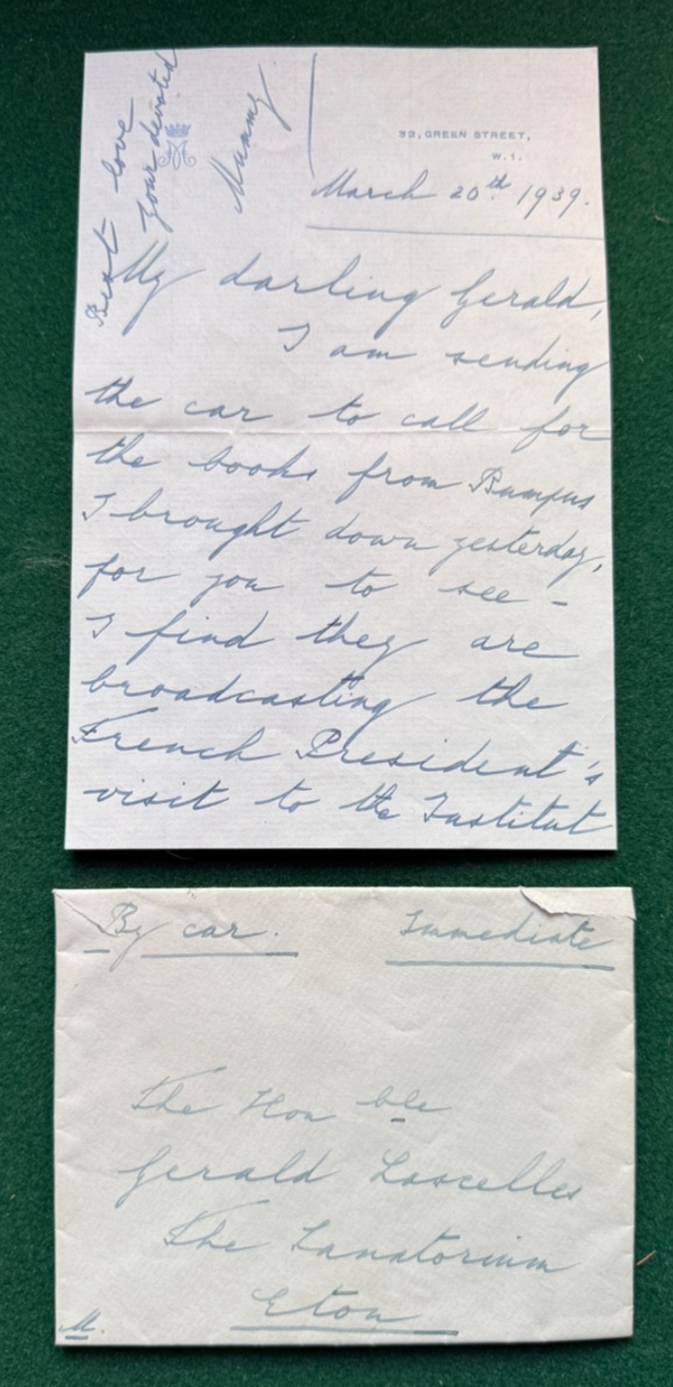 Best love
your devoted
Mummy
32, GREEN STREET,
W.1.
March 20th 1939.
My darling Gerald,
I am sending
the car to call for
the books from Bumpus
I brought down yesterday,
for you to see -
I find they are
broadcasting the
French President's
visit to the Institut
By car.
Immediate
The Hon ble
Gerald Lascelles
The Sanatorium
Eton
M.